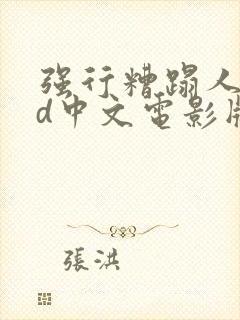 強行糟蹋人
d中文電影版
張洪